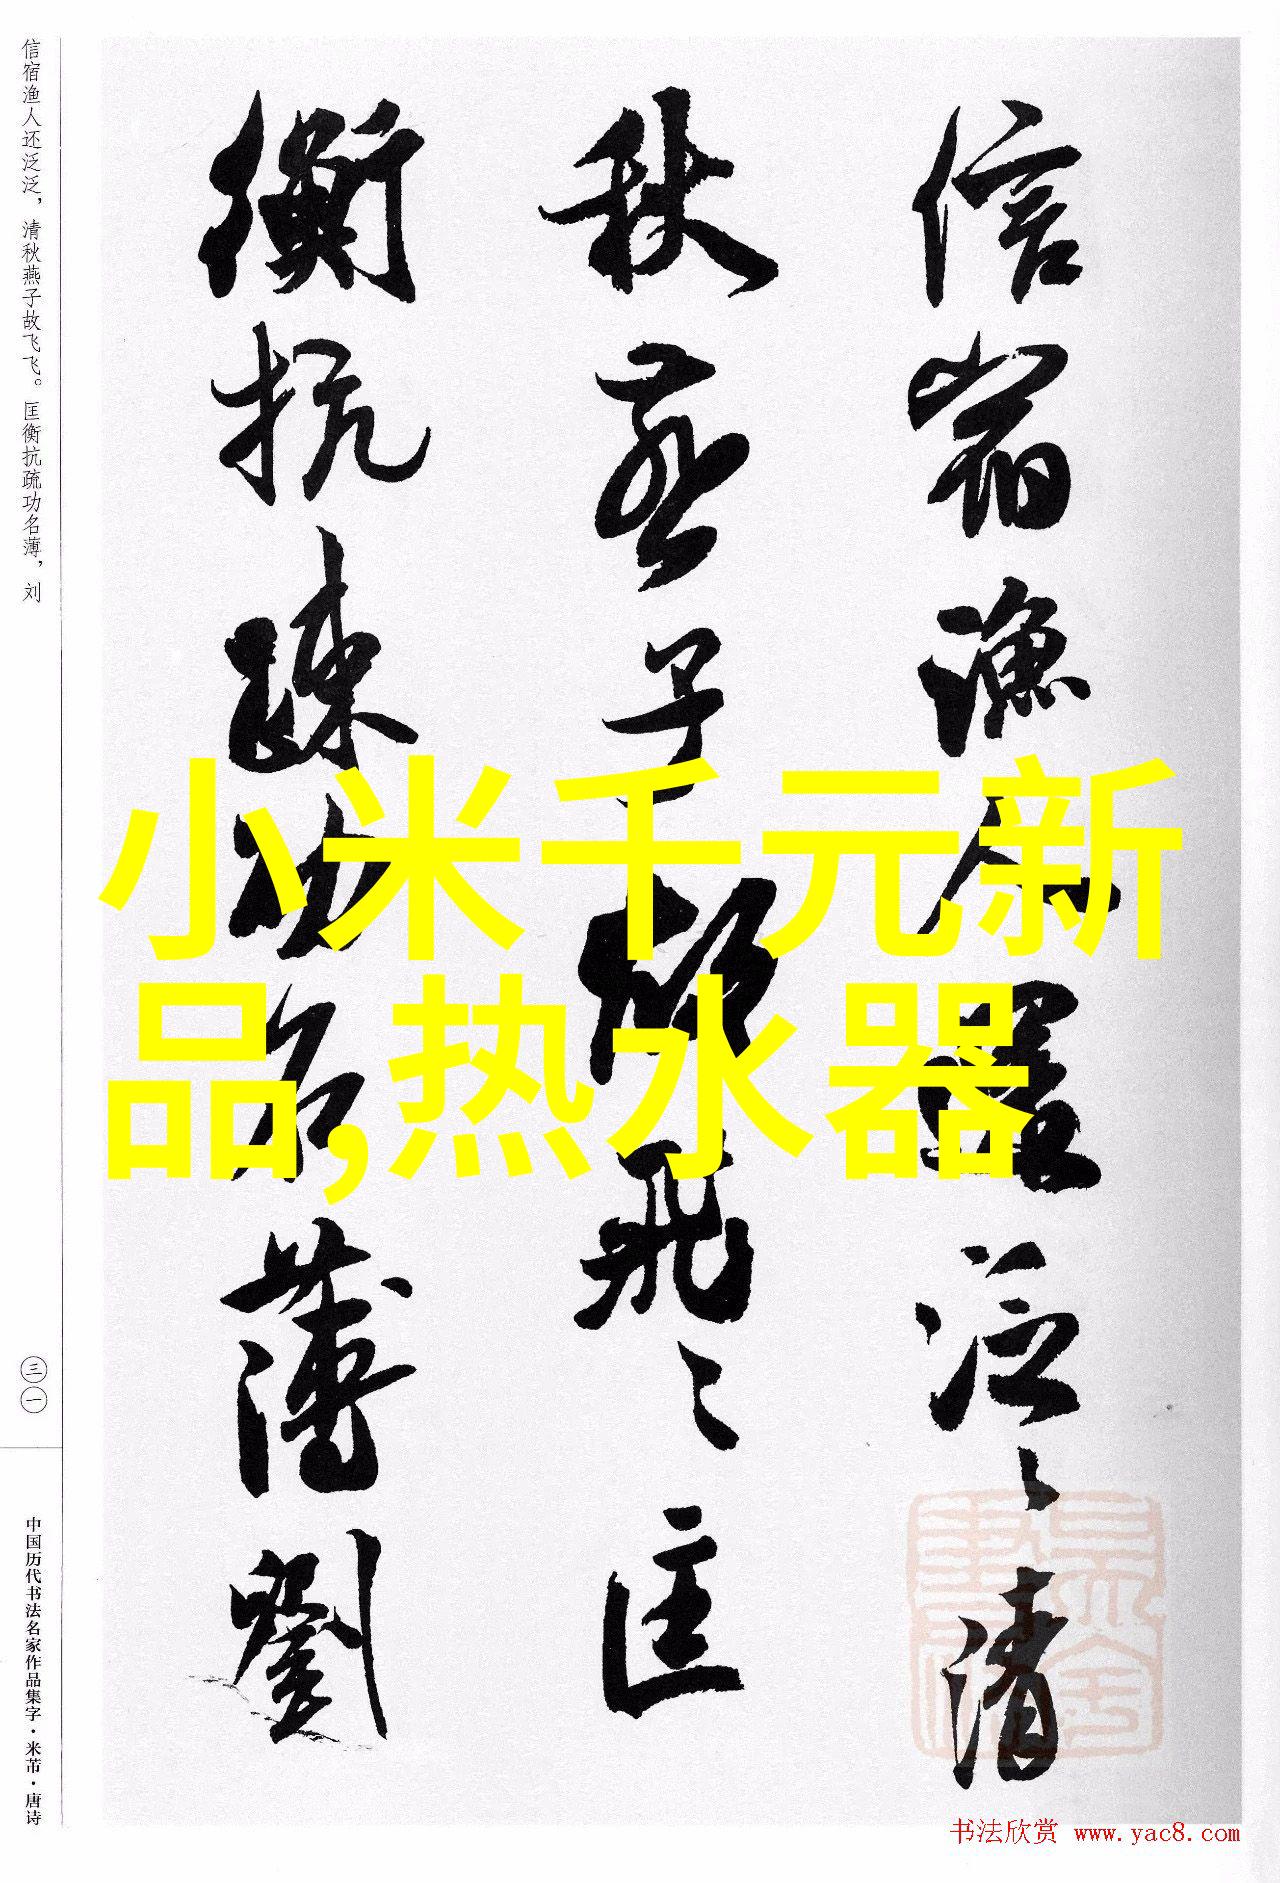 信宿渔人还泛泛，清秋燕子故飞飞。匡衡抗疏功名薄，刘
信宿漁人還泛〻清
秋燕子故飛〻匡
衡抗疏功名薄劉
小米千元新
品,热水器
三一
中国历代书法名家作品集字·米芾·唐诗
书法欣赏 www.yac8.com